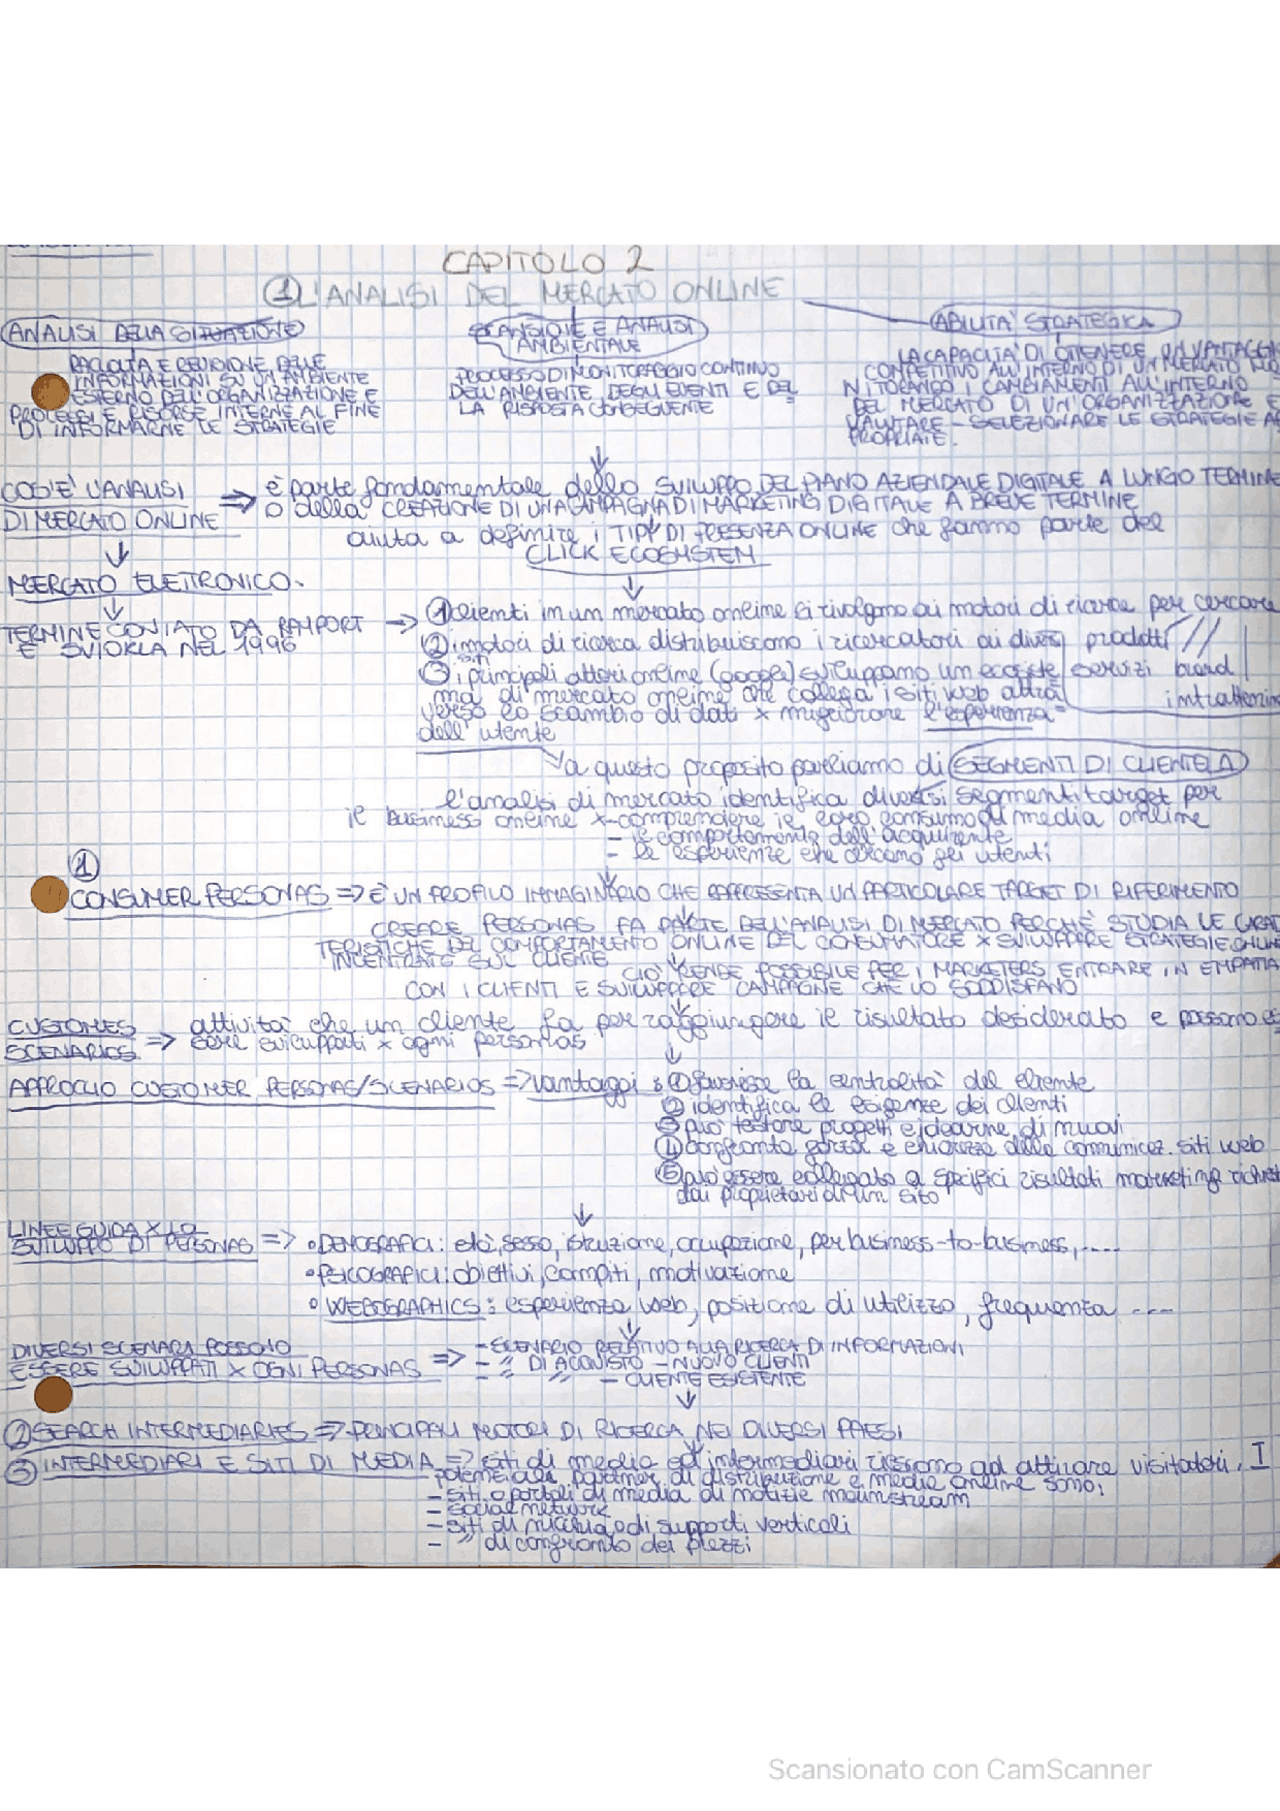 CAPITOLO 2
① L'ANALISI DEL MERCATO ONLINE
ANALISI DELLA SITUAZIONE
RACCOLTA E REVISIONE DELLE
INFORMAZIONI SU UN AMBIENTE
ESTERNO DELL'ORGANIZZAZIONE E
PROCESSI E RISORSE INTERNE AL FINE
DI INFORMARNE LE STRATEGIE
SCANSIONE E ANALISI
AMBIENTALE
PROCESSO DI MONITORAGGIO CONTINUO
DELL'AMBIENTE DEGLI EVENTI E DEL
LA RISPOSTA CONSEGUENTE
ABILITA' STRATEGICA
LA CAPACITA' DI OTTENERE UN VANTAGGI
COMPETITIVO ALL'INTERNO DI UN MERCATO MO
NITORANDO I CAMBIAMENTI ALL'INTERNO
DEL MERCATO DI UN'ORGANIZZAZIONE E
VALUTARE - SELEZIONARE LE STRATEGIE AP
PROPRIATE.
COS'E' L'ANALISI
DI MERCATO ONLINE
=> è parte fondamentale dello SVILUPPO DEL PIANO AZIENDALE DIGITALE A LUNGO TERMINE
O della CREAZIONE DI UNA CAMPAGNA DI MARKETING DIGITALE A BREVE TERMINE
aiuta a definire i TIPI DI PRESENZA ONLINE che fanno parte del
CLICK ECOSYSTEM
MERCATO ELETTRONICO.
TERMINE CONIATO DA RAYPORT
E SVIOKLA NEL 1996
→ ① clienti in un mercato online si rivolgono ai motori di ricerca per cercare
② i motori di ricerca distribuiscono i ricercatori ai diversi
siti
prodotti //
servizi brand
intrattenim
③ i principali attori online (google) sviluppano un ecosiste
ma di mercato online che collega i siti web attra
verso lo scambio di dati x migliorare l'esperienza
dell'utente
a questo proposito parliamo di SEGMENTI DI CLIENTELA
l'analisi di mercato identifica diversi segmenti target per
il business online x - comprendere il loro consumo di media online
- il comportamento dell'acquirente
- le esperienze che cercano gli utenti
①
CONSUMER PERSONAS => E' UN PROFILO IMMAGINARIO CHE RAPPRESENTA UN PARTICOLARE TARGET DI RIFERIMENTO
CREARE PERSONAS FA PARTE DELL'ANALISI DI MERCATO PERCHE' STUDIA LE CARAT
TERISTICHE DEL COMPORTAMENTO ONLINE DEL CONSUMATORE X SVILUPPARE STRATEGIE ONLINE
INCENTRATO SUL CLIENTE
CIO' RENDE POSSIBILE PER I MARKETERS ENTRARE IN EMPATIA
CON I CLIENTI E SVILUPPARE CAMPAGNE CHE LO SODDISFANO
CUSTOMES
SCENARIOS => attività che un cliente fa per raggiungere il risultato desiderato e possono es
sere sviluppati x ogni personas
APPROCCIO CUSTOMER PERSONAS/SCENARIOS => vantaggi: ① favorisce la centralità del cliente
② identifica le esigenze dei clienti
③ può testare progetti e idearne di nuovi
④ confronta forza e chiarezza della comunicaz. siti web
⑤ può essere collegato a specifici risultati marketing richiest
dai proprietari di un sito
LINEE GUIDA X LO
SVILUPPO DI PERSONAS => • DEMOGRAFICI: età, sesso, istruzione, occupazione, per business-to-business, ....
• PSICOGRAFICI: obiettivi, compiti, motivazione
• WEBOGRAPHICS: esperienza web, posizione di utilizzo, frequenza ....
DIVERSI SCENARI POSSONO
ESSERE SVILUPPATI X OGNI PERSONAS =>
- SCENARIO RELATIVO ALLA RICERCA DI INFORMAZIONI
- " DI ACQUISTO - NUOVO CLIENTI
- " " - CLIENTE ESISTENTE
② SEARCH INTERMEDIARIES => PRINCIPALI MOTORI DI RICERCA NEI DIVERSI PAESI
③ INTERMEDIARI E SITI DI MEDIA => siti di media ed intermediari riescono ad attirare visitatori. I
potenziali partner di distribuzione e media online sono:
- siti o portali di media di notizie mainstream
- social network
- siti di nicchia o di supporti verticali
- " di confronto dei prezzi
Scansionato con CamScanner